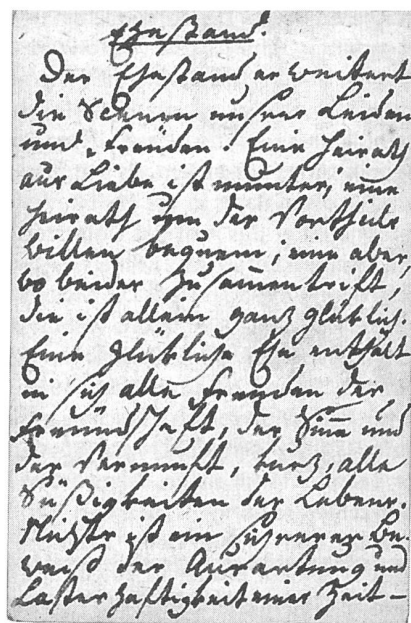 Ehestand.
Der Ehestand erweitert
die Scenen unsrer Leiden
und Freuden. Eine Heirath
aus Liebe ist munter; eine
Heirath um der Vortheile
willen bequem; eine aber,
wo beides zusammentrift,
die ist allein ganz glüklich.
Eine glükliche Ehe enthält
in sich alle Freuden der
Freundschaft, der Sinne und
der Vernunft, kurz, alle
Süßigkeiten des Lebens.
Nichts ist ein sichrerer Be-
weiß der Ausartung und
Lasterhaftigkeit einer Zeit –